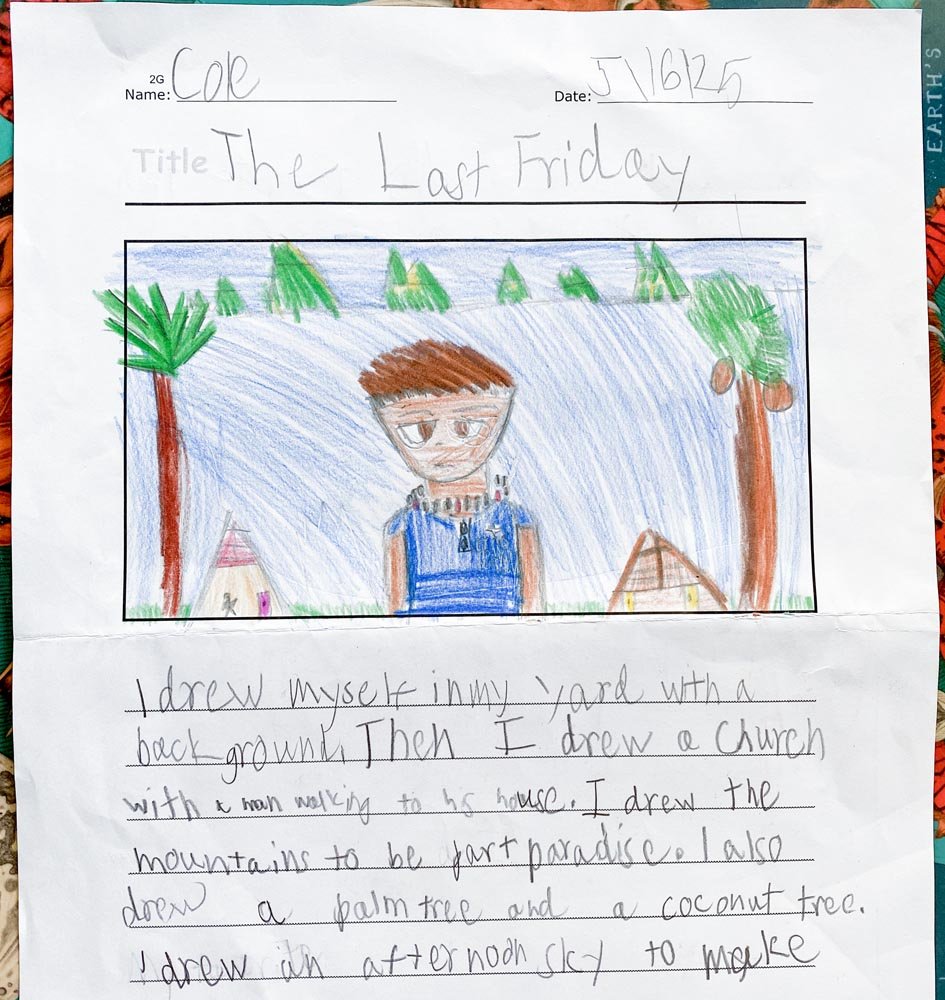 2G
Name: Cole
Date: 5\16\25
Title The Last Friday
EARTH'S
I drew myself in my yard with a
background. Then I drew a church
with a man walking to his house. I drew the
mountains to be part paradise. I also
drew a palm tree and a coconut tree.
I drew an afternoon sky to make